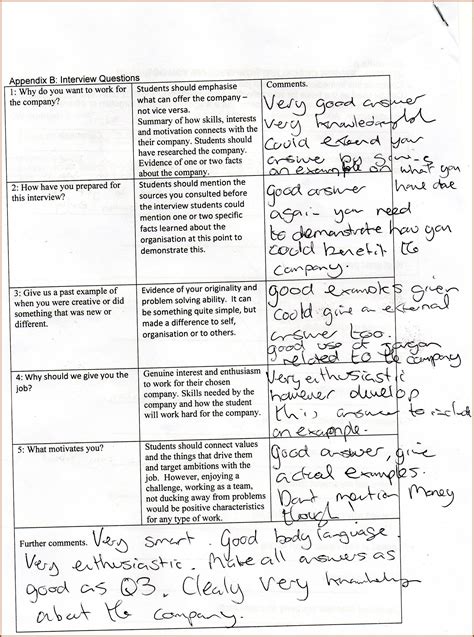 Appendix B: Interview Questions
1: Why do you want to work for
the company?
Students should emphasise
what can offer the company –
not vice versa.
Summary of how skills, interests
and motivation connects with the
their company. Students should
have researched the company.
Evidence of one or two facts
about the company.
Comments.
Very good answer
Very
Could extend your
answer by
an example on what you
have done
2: How have you prepared for
this interview?
Students should mention the
sources you consulted before
the interview students could
mention one or two specific
facts learned about the
organisation at this point to
demonstrate this.
good answer
again - you need
to demonstrate how you
could benefit the
company.
3: Give us a past example of
when you were creative or did
something that was new or
different.
Evidence of your originality and
problem solving ability. It can
be something quite simple, but
made a difference to self,
organisation or to others.
good examples given
Could give an external
answer too.
good use of jargon
related to the company
4: Why should we give you the
job?
Genuine interest and enthusiasm
to work for their chosen
company. Skills needed by the
company and how the student
will work hard for the company.
Very enthusiastic
however develop
this answer to include
an example.
5: What motivates you?
Students should connect values
and the things that drive them
and target ambitions with the
job. However, enjoying a
challenge, working as a team,
not ducking away from problems
would be positive characteristics
for any type of work.
Good answer, give
actual examples.
Dont mention Money
though
Further comments. Very smart. Good body language.
Very enthusiastic. Make all answers as
good as Q3. Clealy Very
about the company.